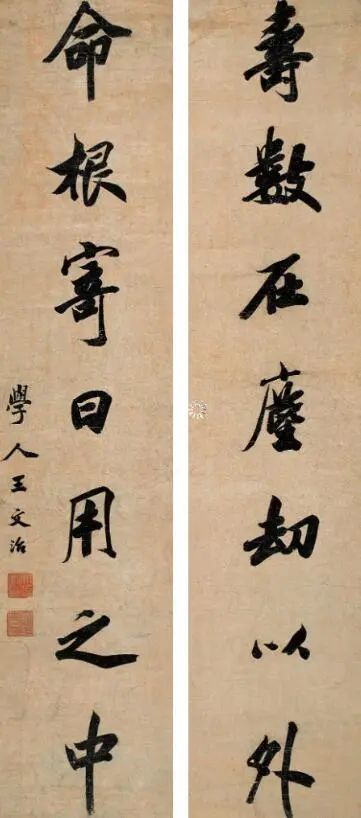 壽數在塵劫以外
命根寄日用之中
學人王文治